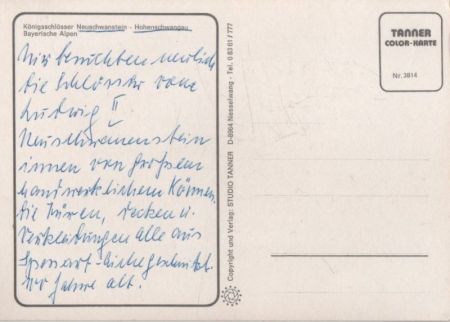 Königsschlösser Neuschwanstein - Hohenschwangau
Bayerische Alpen
Wir besuchten neulich
die Schlösser vom
Ludwig II
Neuschwanenstein
innen von großem
handwerklichem Können.
die Türen, Decken u.
Verkleidungen alle aus
geschnitzt.
Jahre alt.
Copyright und Verlag: STUDIO TANNER D-8964 Nesselwang - Tel. 0 83 61 / 777
TANNER
COLOR-KARTE
Nr. 3814